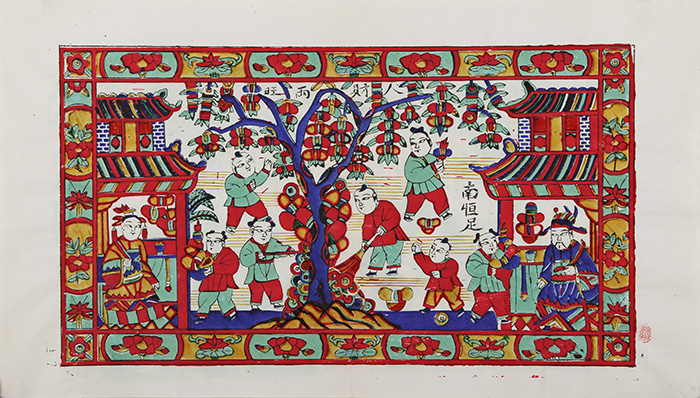 人財兩旺
南恒足